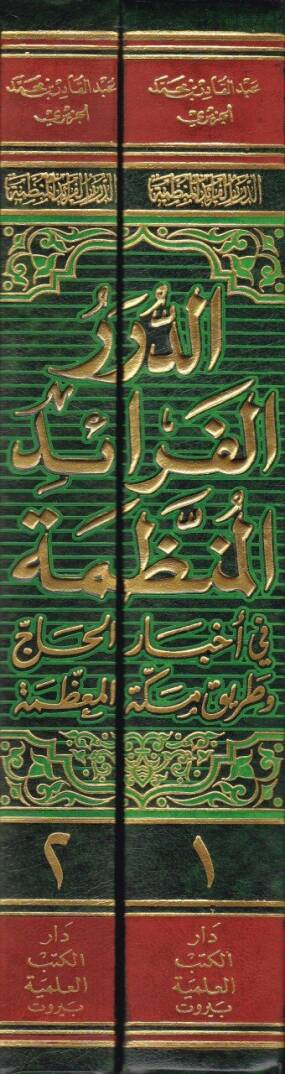 عبد القادر بن محمد
الجزيري
عبد القادر بن محمد
الجزيري
الدرر الفرائد المنظمة
الدرر الفرائد المنظمة
الدُّرَرُ
الفَرَائِدُ
المُنَظَّمَة
في أخبار الحاج
وطريق مكة المعظمة
١
٢
دار
الكتب
العلمية
بيروت
دار
الكتب
العلمية
بيروت